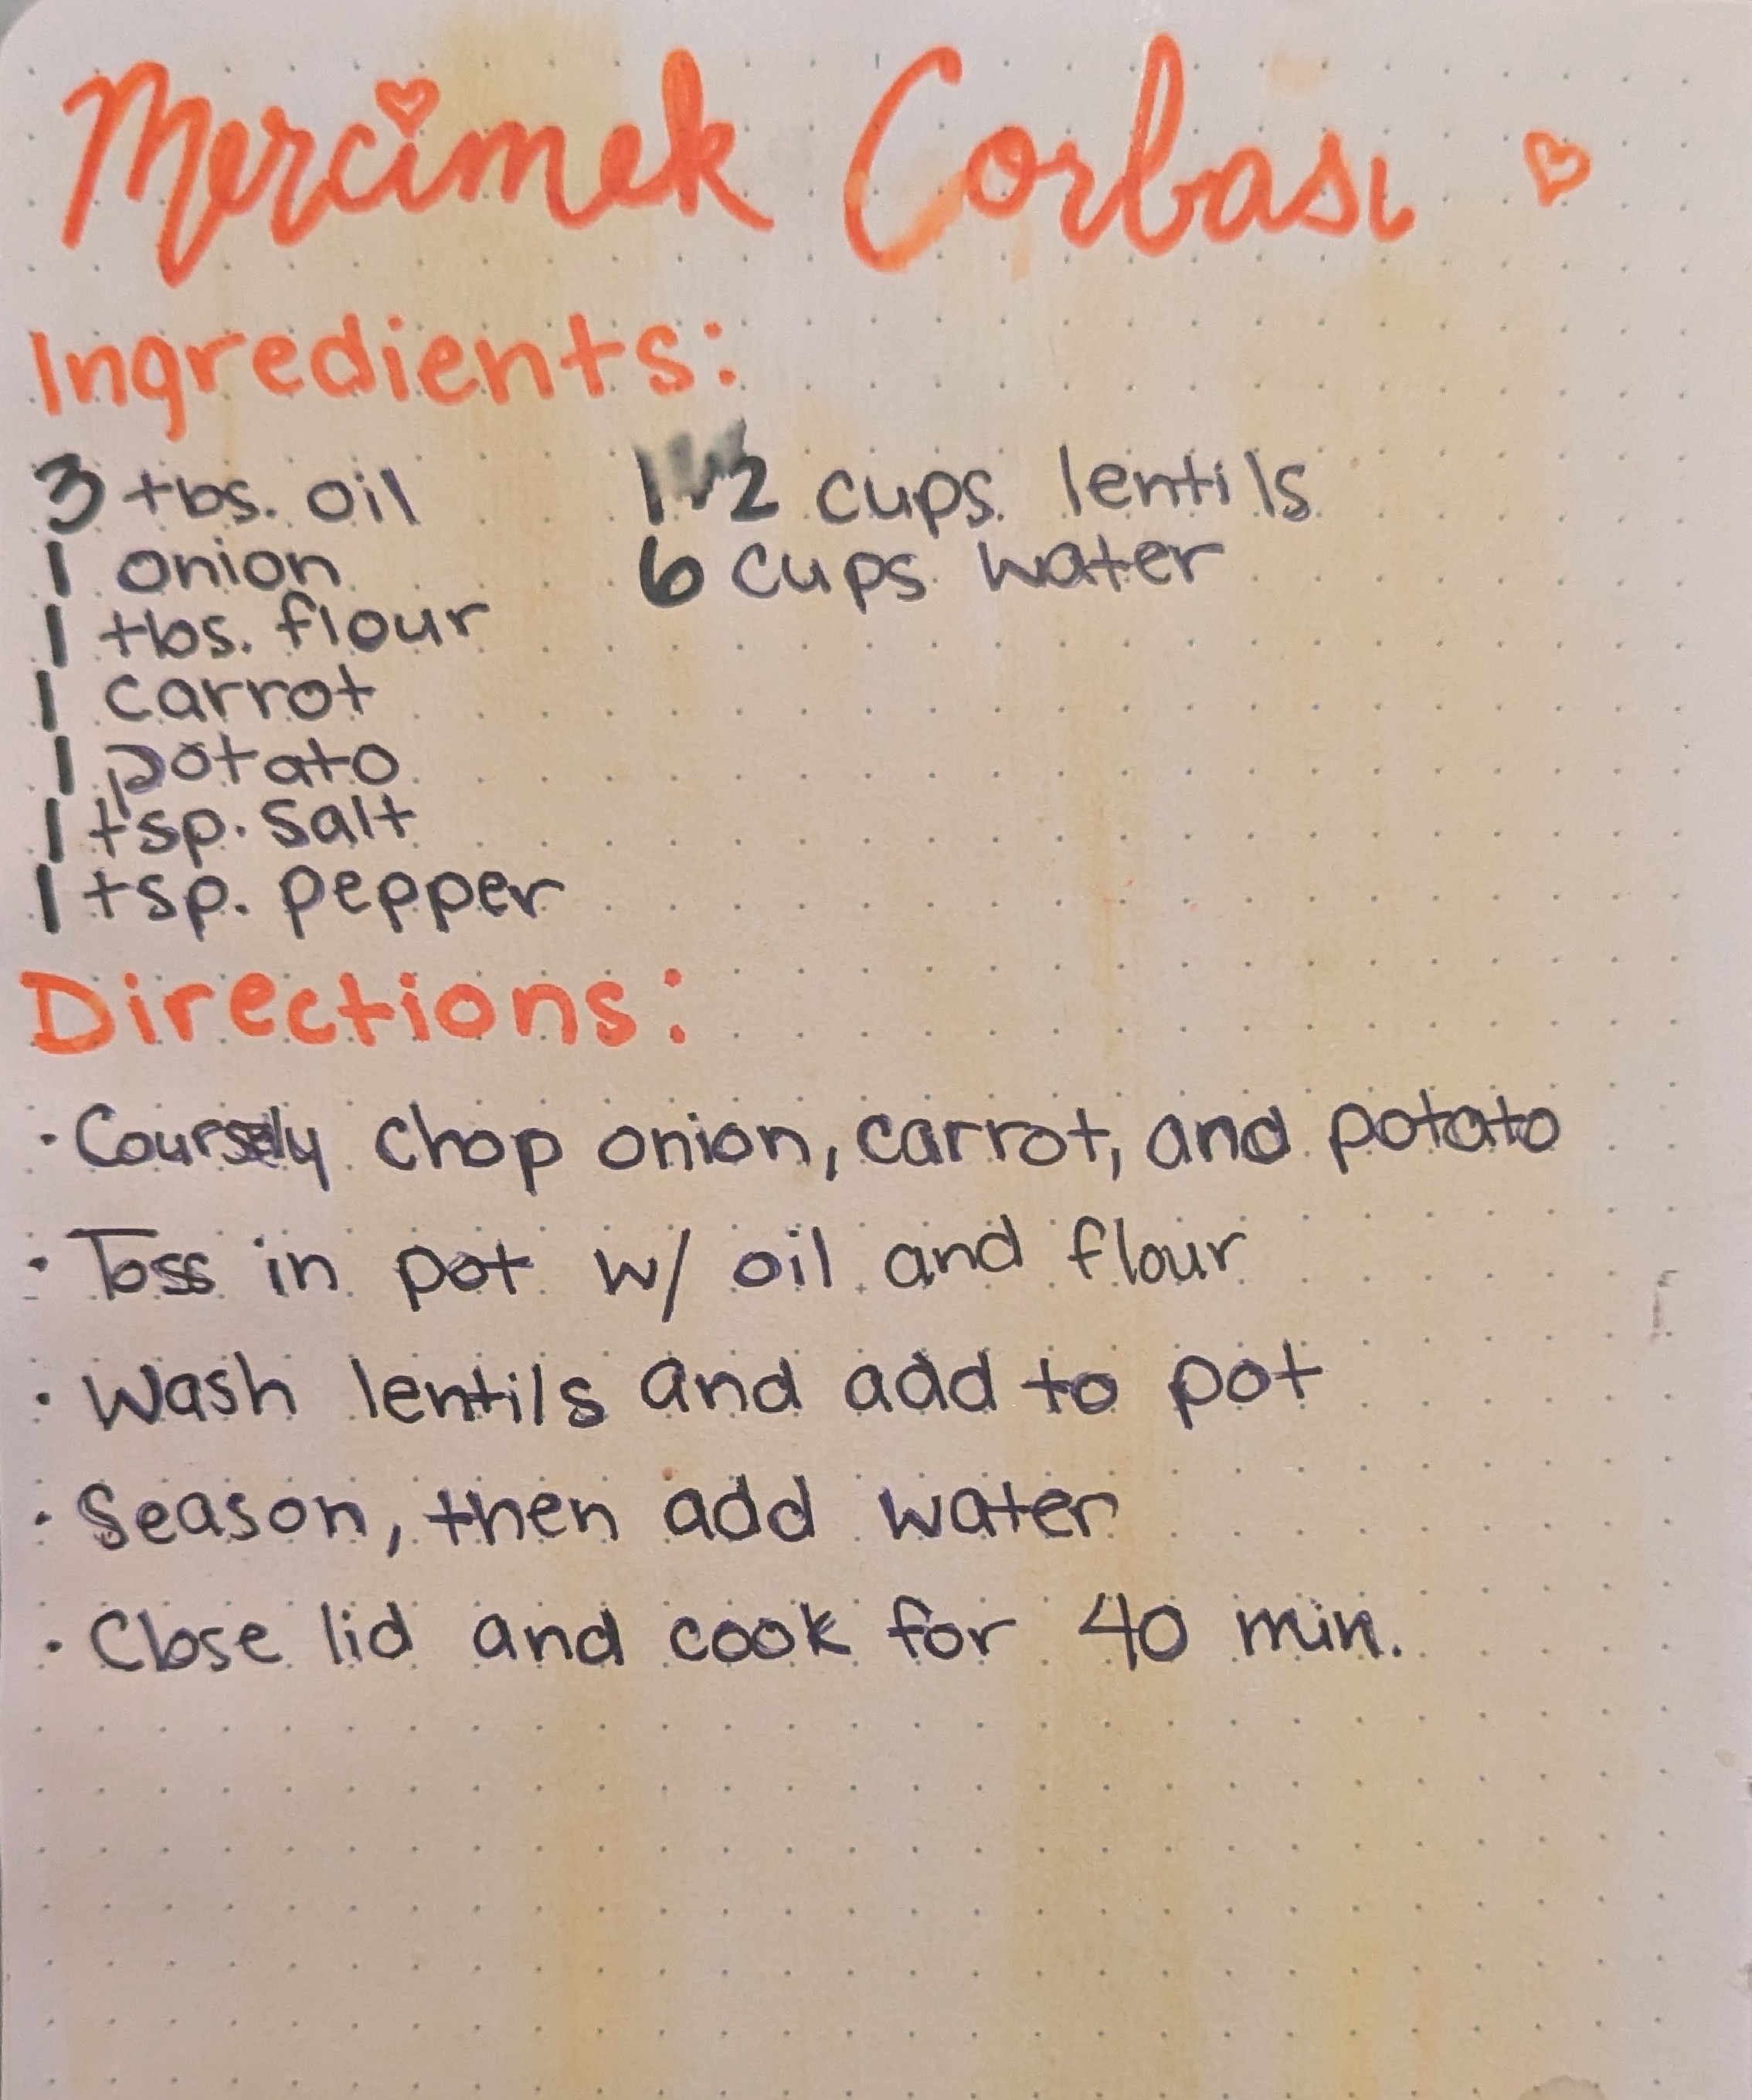 Mercimek Corbası
Ingredients:
3 tbs. oil
1 onion
1 tbs. flour
1 carrot
1 potato
1 tsp. salt
1 tsp. pepper
cups lentils
6 cups water
Directions:
· Coursely chop onion, carrot, and potato
· Toss in pot w/ oil and flour
· Wash lentils and add to pot
· Season, then add water
· Close lid and cook for 40 min.